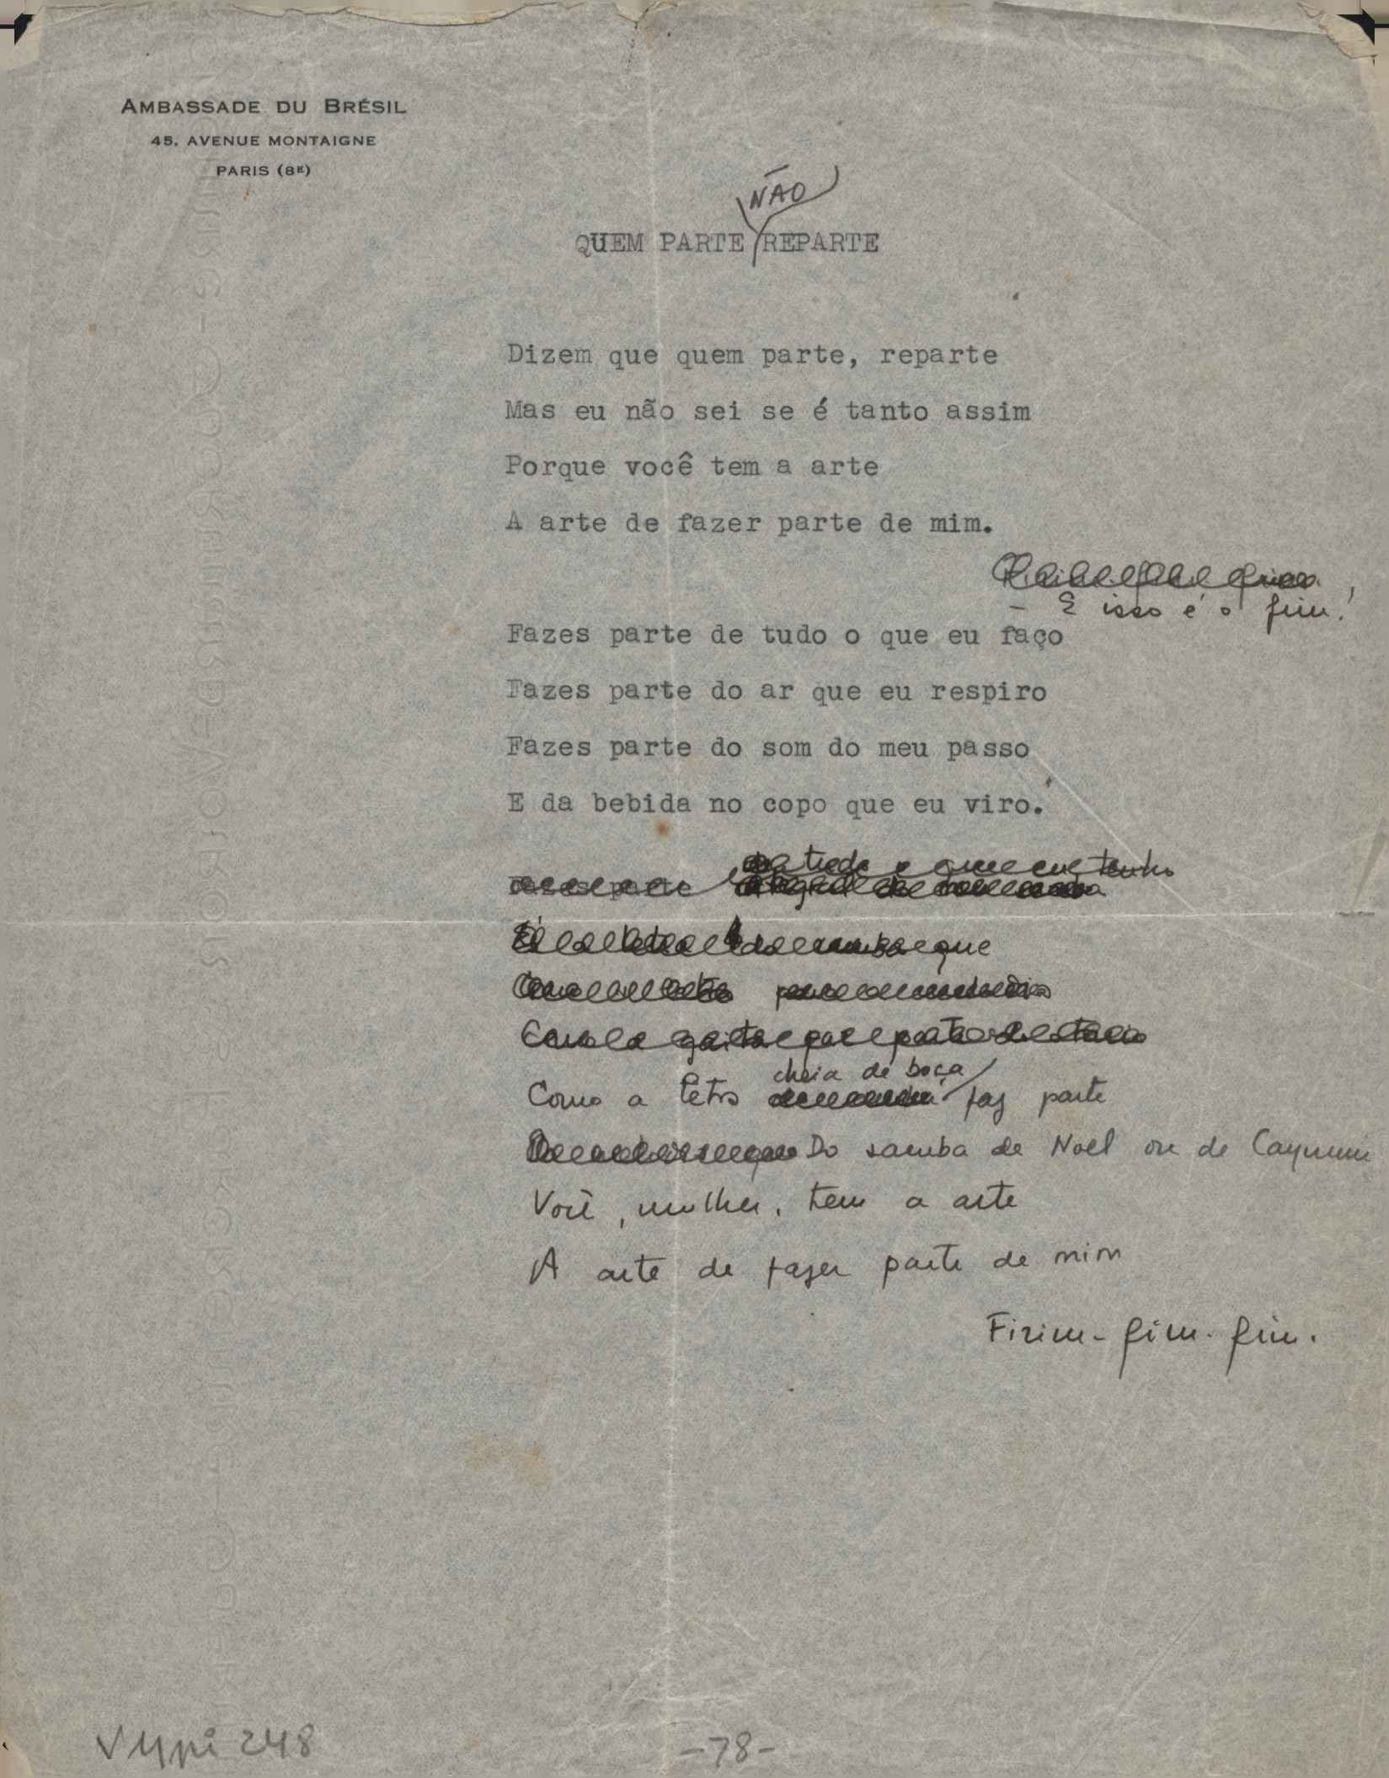 AMBASSADE DU BRÉSIL
45, AVENUE MONTAIGNE
PARIS (8E)
NÃO
QUEM PARTE REPARTE
Dizem que quem parte, reparte
Mas eu não sei se é tanto assim
Porque você tem a arte
A arte de fazer parte de mim.
- E isso é o fim!
Fazes parte de tudo o que eu faço
Fazes parte do ar que eu respiro
Fazes parte do som do meu passo
E da bebida no copo que eu viro.
tudo o que eu tenho
Fazes parte
que
cheia de boça
Como a letra faz parte
Do samba de Noel ou de Caymmi
Você, mulher, tem a arte
A arte de fazer parte de mim
Firim-fim-fim.
Vypi 248
-78-